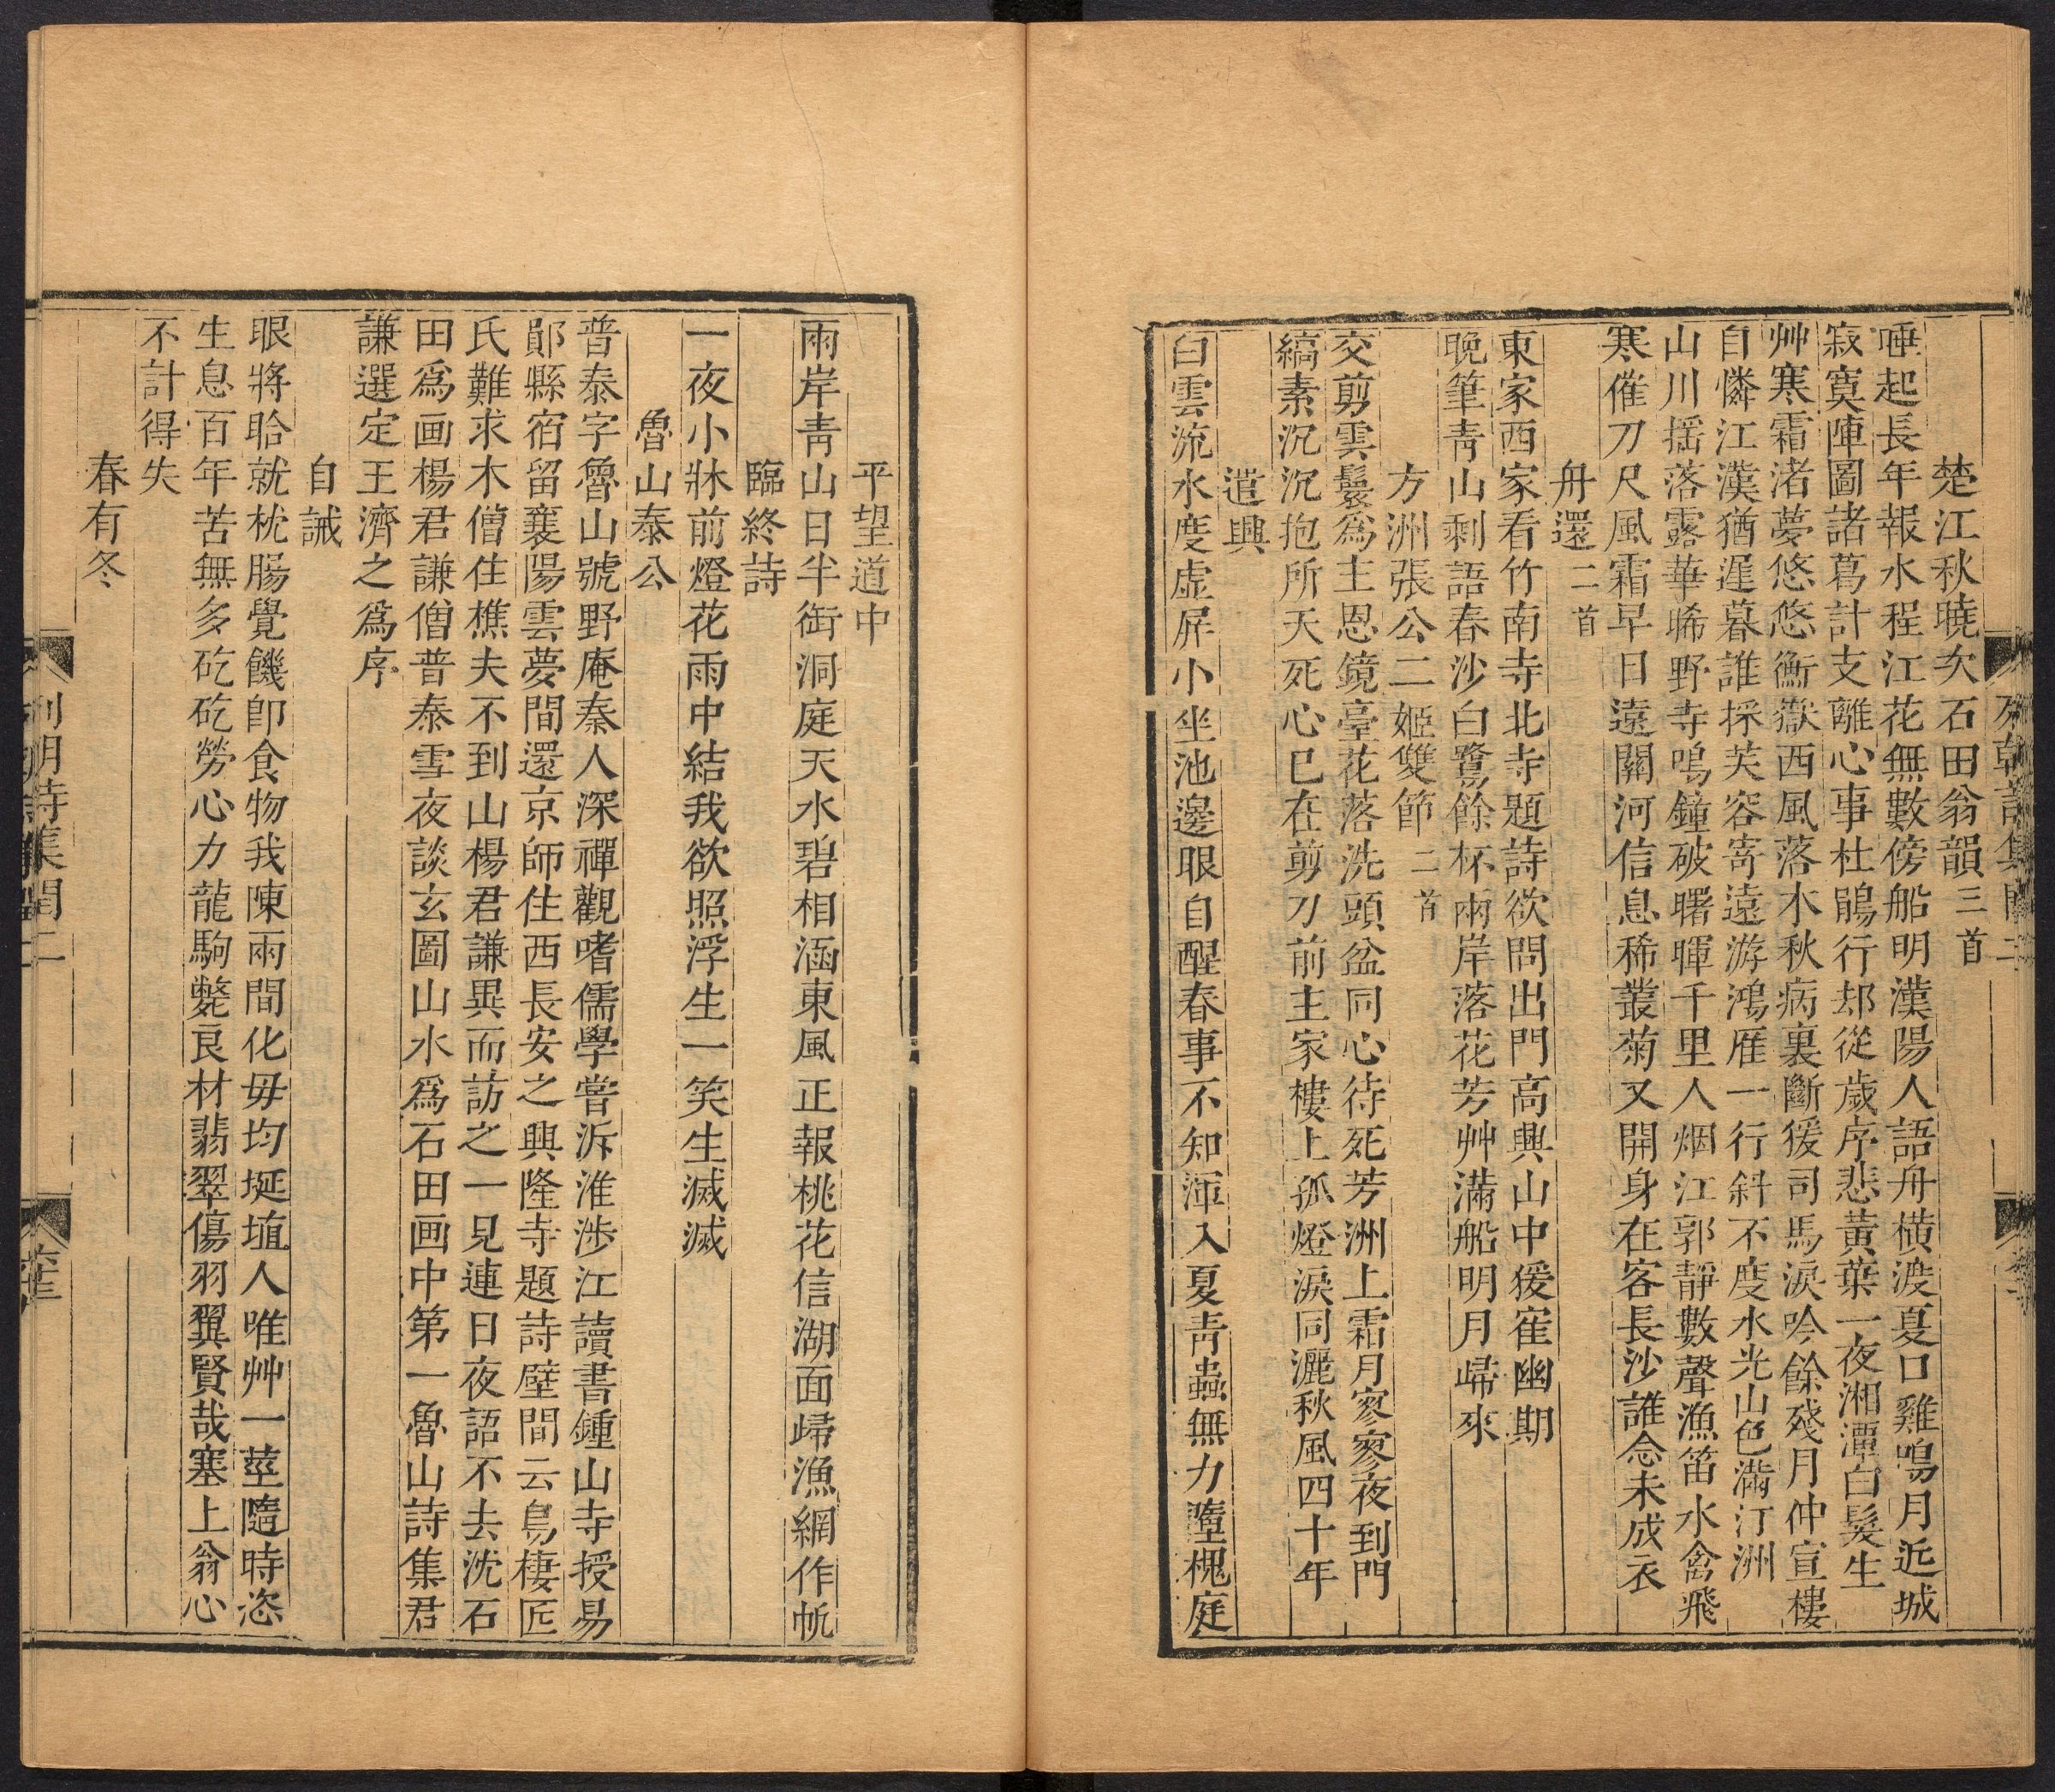 楚江秋曉次石田翁韻三首
唾起長年報水程江花無數傍船明漢陽人語舟橫渡夏口雞鳴月近城
寂寞陣圖諸葛計支離心事杜鵑行却從歲序悲黃葉一夜湘潭白髮生
艸寒霜渚夢悠悠衡嶽西風落木秋病裏斷猨司馬淚吟餘殘月仲宣樓
自憐江漢猶遲暮誰採芙容寄遠游鴻雁一行斜不度水光山色滿汀洲
山川揺落露華晞野寺鳴鐘破曙暉千里人烟江郭靜數聲漁笛水禽飛
寒催刀尺風霜早日遠關河信息稀叢菊又開身在客長沙誰念未成衣
舟還二首
東家西家看竹南寺北寺題詩欲問出門高興山中猨寉幽期
晚筆青山剩語春沙白鷺餘杯兩岸落花芳艸滿船明月歸來
方洲張公二姬雙節二首
交剪雲鬟爲主恩鏡臺花落洗頭盆同心待死芳洲上霜月寥寥夜到門
縞素沉沉抱所天死心已在剪刀前主家樓上孤燈淚同灑秋風四十年
遣興
白雲流水度虛屏小坐池邊眼自醒春事不知渾入夏青蟲無力墮槐庭
平望道中
兩岸青山日半銜洞庭天水碧相涵東風正報桃花信湖面歸漁網作帆
臨終詩
一夜小牀前燈花雨中結我欲照浮生一笑生滅滅
魯山泰公
普泰字魯山號野庵秦人深禪觀嗜儒學嘗泝淮涉江讀書鍾山寺授易
鄖縣宿留襄陽雲夢間還京師住西長安之興隆寺題詩壁間云鳥棲匠
氏難求木僧住樵夫不到山楊君謙異而訪之一見連日夜語不去沈石
田爲画楊君謙僧普泰雪夜談玄圖山水爲石田画中第一魯山詩集君
謙選定王濟之爲序
自誡
眼將眙就枕腸覺饑即食物我陳兩間化毋均埏埴人唯艸一莖隨時恣
生息百年苦無多矻矻勞心力龍駒斃良材翡翠傷羽翼賢哉塞上翁心
不計得失
春有冬
列朝詩集閏二